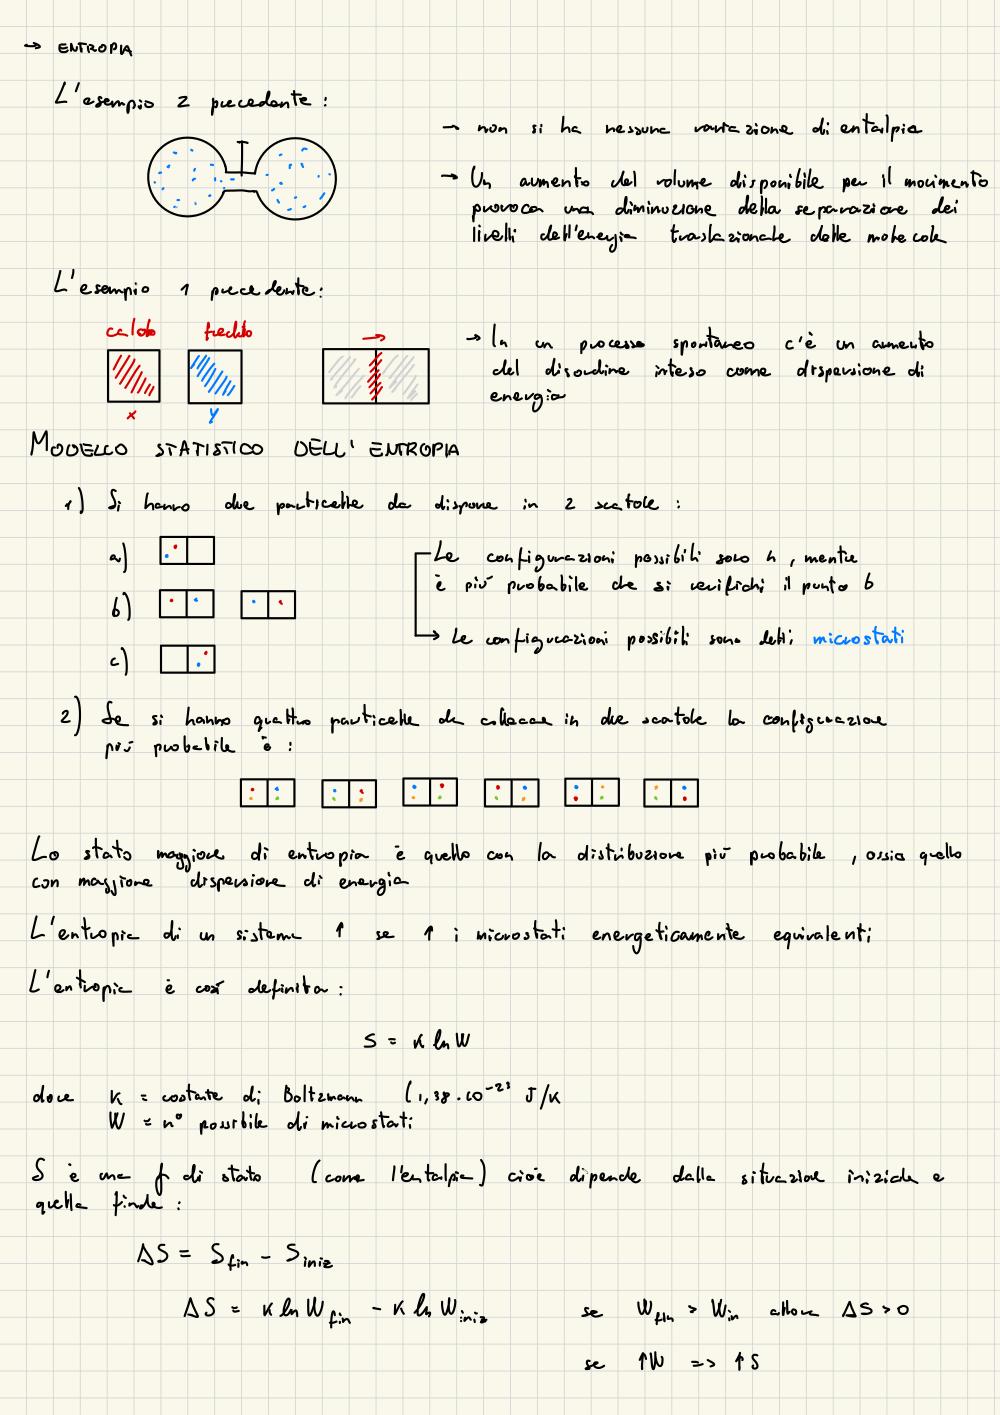 → ENTROPIA
L'esempio 2 precedente :
→ non si ha nessuna variazione di entalpia
→ Un aumento del volume disponibile per il movimento
provoca una diminuzione della separazione dei
livelli dell'energia traslazionale delle molecole
L'esempio 1 precedente:
caldo freddo
→
x y
→ In un processo spontaneo c'è un aumento
del disordine inteso come dispersione di
energia
MODELLO STATISTICO DELL'ENTROPIA
1) Si hanno due particelle da disporre in 2 scatole :
a)
b)
c)
Le configurazioni possibili sono 4, mentre
è più probabile che si verifichi il punto b
→ Le configurazioni possibili sono detti microstati
2) Se si hanno quattro particelle da collocare in due scatole la configurazione
più probabile è :
Lo stato maggiore di entropia è quello con la distribuzione più probabile , ossia quello
con maggiore dispersione di energia
L'entropia di un sistema ↑ se ↑ i microstati energeticamente equivalenti
L'entropia è così definita :
S = K ln W
dove K = costante di Boltzmann (1,38 · 10⁻²³ J/K
W = n° possibile di microstati
S è una f di stato (come l'entalpia) cioè dipende dalla situazione iniziale e
quella finale :
ΔS = S fin - S iniz
ΔS = K ln W fin - K ln W iniz se W fin > W in allora ΔS > 0
se ↑W => ↑S